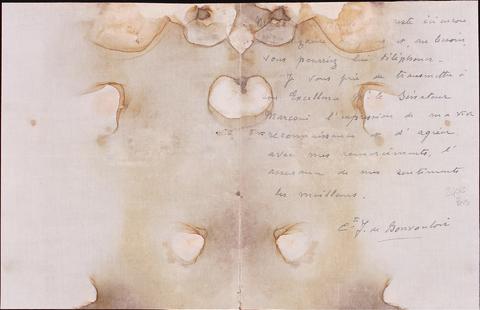 reste ici encore
et, au besoin,
vous pourriez lui téléphoner.
Je vous prie de transmettre à
son Excellence le Sénateur
Marconi l'expression de ma vive
reconnaissance et d'agréer,
avec mes remerciements, l'
assurance de mes sentiments
les meilleurs.
Ct J. de Bonvouloir